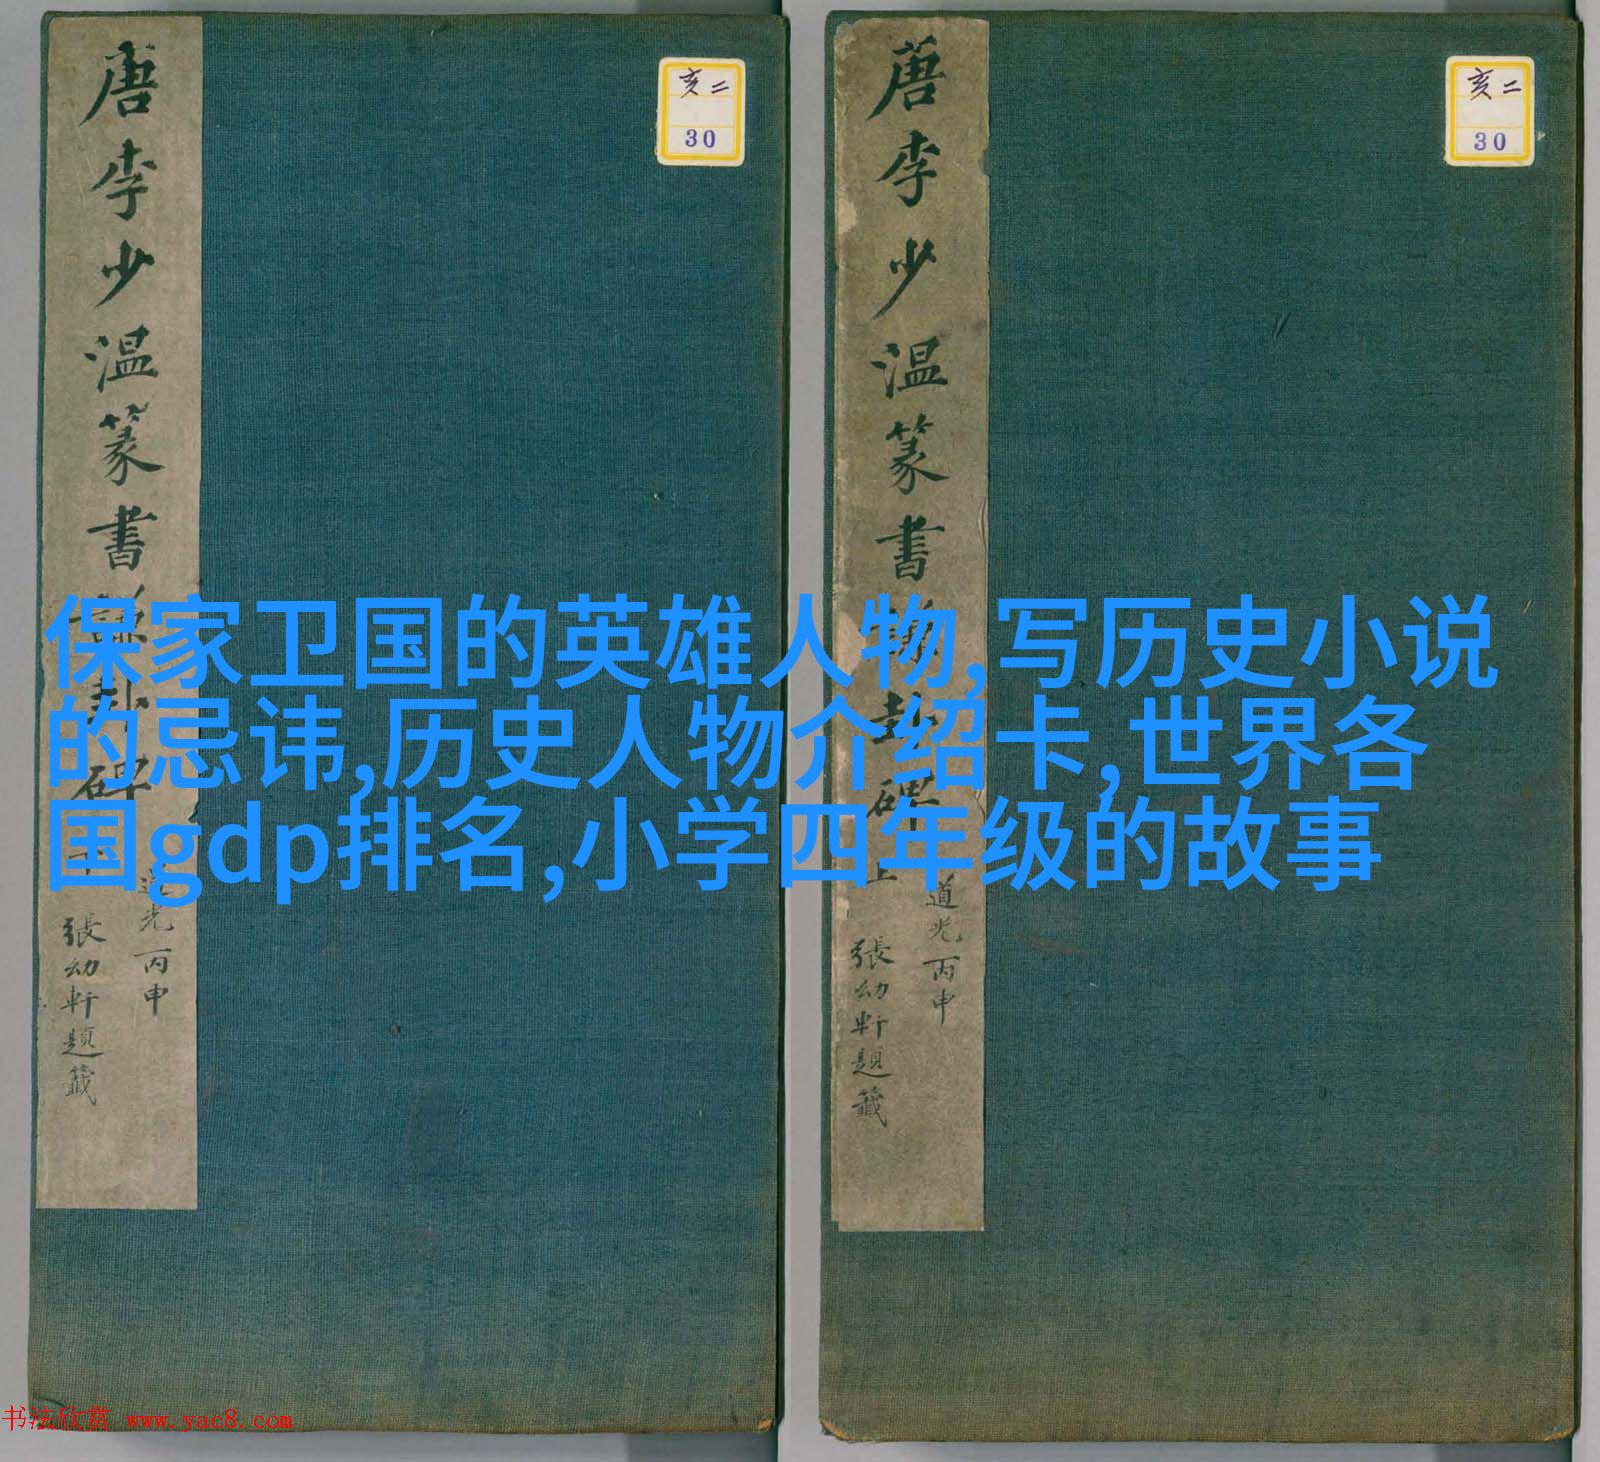 唐李少温篆書謙卦碑下
道光丙申
張幼軒題籤
亥二
30
唐李少温篆書謙卦碑上
道光丙申
張幼軒題籤
亥二
30
保家卫国的英雄人物,写历史小说
的忌讳,历史人物介绍卡,世界各
国gdp排名,小学四年级的故事
书法欣赏 www.yac8.com